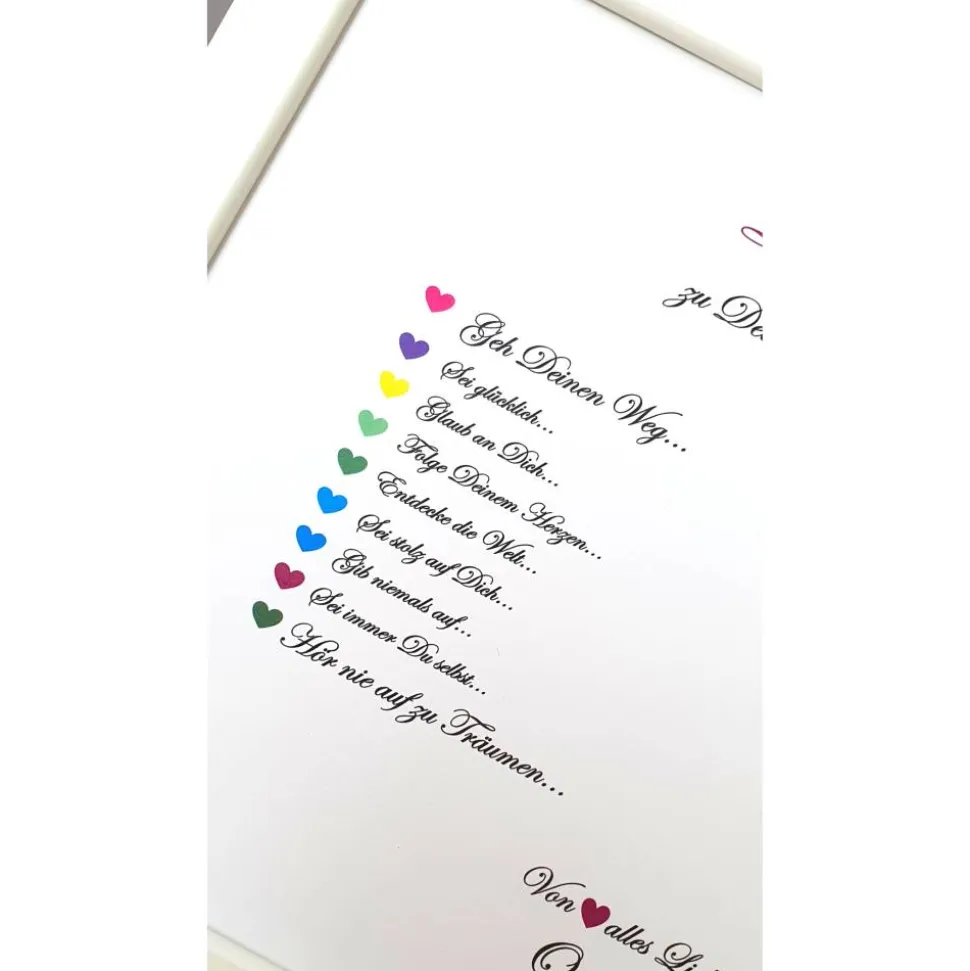 zu De
Geh Deinen Weg...
Sei glücklich...
Glaub an Dich...
Folge Deinem Herzen...
Entdecke die Welt...
Sei stolz auf Dich...
Gib niemals auf...
Sei immer Du selbst...
Hör nie auf zu Träumen...
Von ❤ alles Li